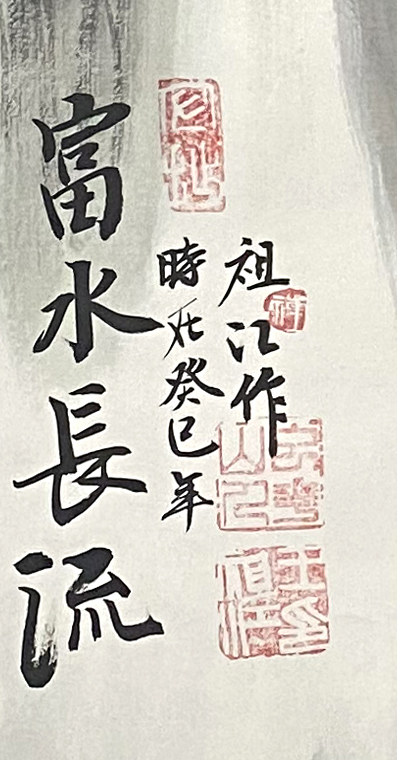 富水長流
時在癸巳年
祖江作